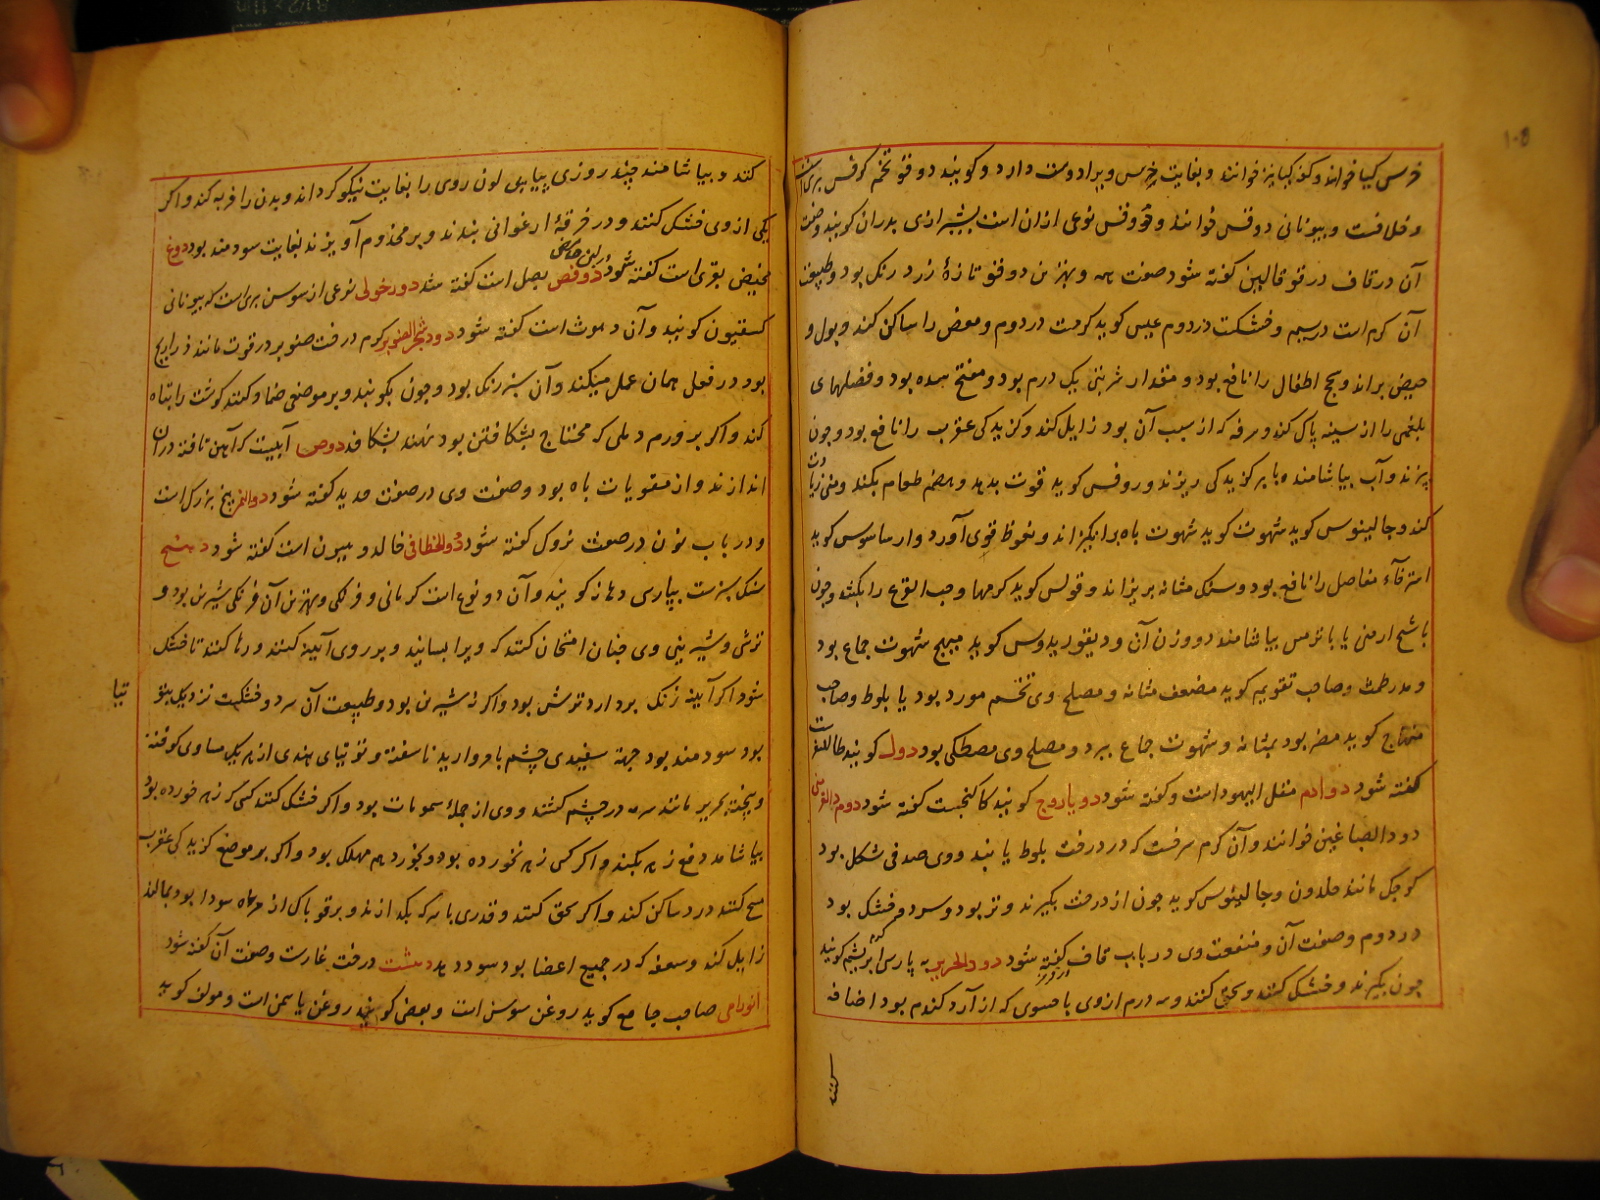 ۱۰۵
خرس کیا خوانند و کزر کیا نیز خوانند و بغایت خرس ویرا دوست دارد و کویند دوقو تخم کرفس بری است
و خلافست و بیونانی دوقس خوانند و دوقس نوعی از ان است بشیرازی بدران کویند و صفت
آن در قاف در قو قالیس کفته شود صفت و بهترین دوقو تازهٔ زرد رنک بود و طبیعت
آن کرم است در سیم و خشکست در دوم عیسی کوید کرمست در دوم و مغص را ساکن کند و بول و
حیض براند و سحج اطفال را نافع بود و مقدار شربتی یک درم بود و مفتح سده بود و فضلهای
بلغمی را از سینه پاک کند و سرفه که از سبب آن بود زایل کند و کزیدکی عقرب را نافع بود و چون
بپزند و آب بیاشامند یا بر کزیدکی ریزند و روفس کوید قوت بدهد و هضم طعام بکند و منی زیادت
کند و جالینوس کوید شهوت کوید شهوت باه برانکیزاند و نعوظ قوی آورد و ارساسوس کوید
استرخاء مفاصل را نافع بود و سنک مثانه بریزاند و قولس کوید کرمها و حب القرع را بکشد و چون
با شیح ارمنی یا با ترمس بیاشامند دو وزن آن و دیقوریدوس کوید مهیج شهوت جماع بود
و مدر طمث و صاحب تقویم کوید مضعف مثانه و مصلح وی تخم مورد بود یا بلوط و صاحب
منهاج کوید مضر بود بمثانه و شهوت جماع ببرد و مصلح وی مصطکی بود دول کویند طالیسفر است
کفته شود دوادم مقل الیهود است و کفته شود دویاروج کویند کاکنجست کفته شود دوم القرمز
دود الصباغین خوانند و آن کرم سرخست که در درخت بلوط یابند و وی صدفی شکل بود
کوچک مانند حلزون و جالینوس کوید چون از درخت بکیرند و تر بود و سرد و خشک بود
در دوم و صفت آن و منفعت وی در باب قاف کفته شود دود الحریر به پارسی کرم ابریشم کویند
چون بکیرند و خشک کنند و سحق کنند و سه درم از وی با حسوی که از آرد کندم بود اضافه
کنند
کنند و بیاشامند چند روزی پیاپی لون روی را بغایت نیکو کرداند و بدن را فربه کند و اکر
یکی از وی خشک کنند و در خرقهٔ ارغوانی بندند و بر مجذوم آویزند بغایت سودمند بود دوغ
مخیض بقری است کفته شود در لبن حامض دوفص بصل است کفته شد دورخولی نوعی از سوسن بری است که بیونانی
کسفیون کویند و آن دموث است کفته شود دود شجر الصنوبر کرم درخت صنوبر در قوت مانند ذراریح
بود در فعل همان عمل میکند و آن سبز رنک بود و چون بکوبند و بر موضعی ضماد کنند کوشت را تباه
کند و اکر بر ورم دملی که محتاج بشکافتن بود نهند بشکافد دوص آبیست که آهن تافته در آن
اندازند و از مقویات باه بود و صفت وی در صفت حدید کفته شود دوالخمر بیخ بزرک است
و در باب نون در صفت نروک کفته شود دوالخطافی خالدونیون است کفته شود دهنج
سنک سبزست بپارسی دهانه کویند و آن دو نوع است کرمانی و فرنکی و بهترین آن فرنکی شیرین بود و
ترشی و شیرینی وی چنان امتحان کنند که ویرا بسایند و بر روی آیینه کنند و رها کنند تا خشک
شود اکر آیینه زنک بردارد ترش بود و اکر نه شیرین بود و طبیعت آن سرد و خشکست نزدیک بتو
تیا
بود سودمند بود جهة سفیدی چشم با مروارید ناسفته و توتیای هندی از هر یکی مساوی کوفته
و بیخته بحریر مانند سرمه در چشم کشند و وی از جملهٔ سمومات بود و اکر خشک کنند کسی که زهر خورده بود
بیاشامد دفع زهر بکند و اکر کسی زهر نخورده بود و بخورد هم مهلک بود و اکر بر موضع کزیدکی عقرب
مسح کنند درد ساکن کند و اکر سحق کنند و قدری با سرکه بکدازند و بر قوبا که از مرهٔ سودا بود بمالند
زایل کند و سعفه که در جمیع اعضا بود سود دهد دهمشت درخت غارست و صفت آن کفته شود
صاحب جامع کوید روغن سوسن است و بعضی کویند روغن یاسمن است و مولف کوید